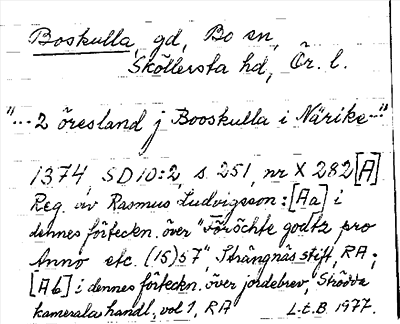 Boskulla, gd, Bo sn,
Sköllersta hd, Ör. l.
"... 2 öresland j Booskulla i Närike..."
1374, SD 10:2, s. 251, nr X 282 [A]
Reg. av Rasmus Ludvigsson: [Aa] i
dennes förteckn. över "Förs̈öchte godtz pro
Anno etc. (15)57", Strängnäs stift, RA;
[Ab] i dennes förteckn. över jordebrev, Strödda
kamerala handl, vol 1, RA L.E.B. 1977.